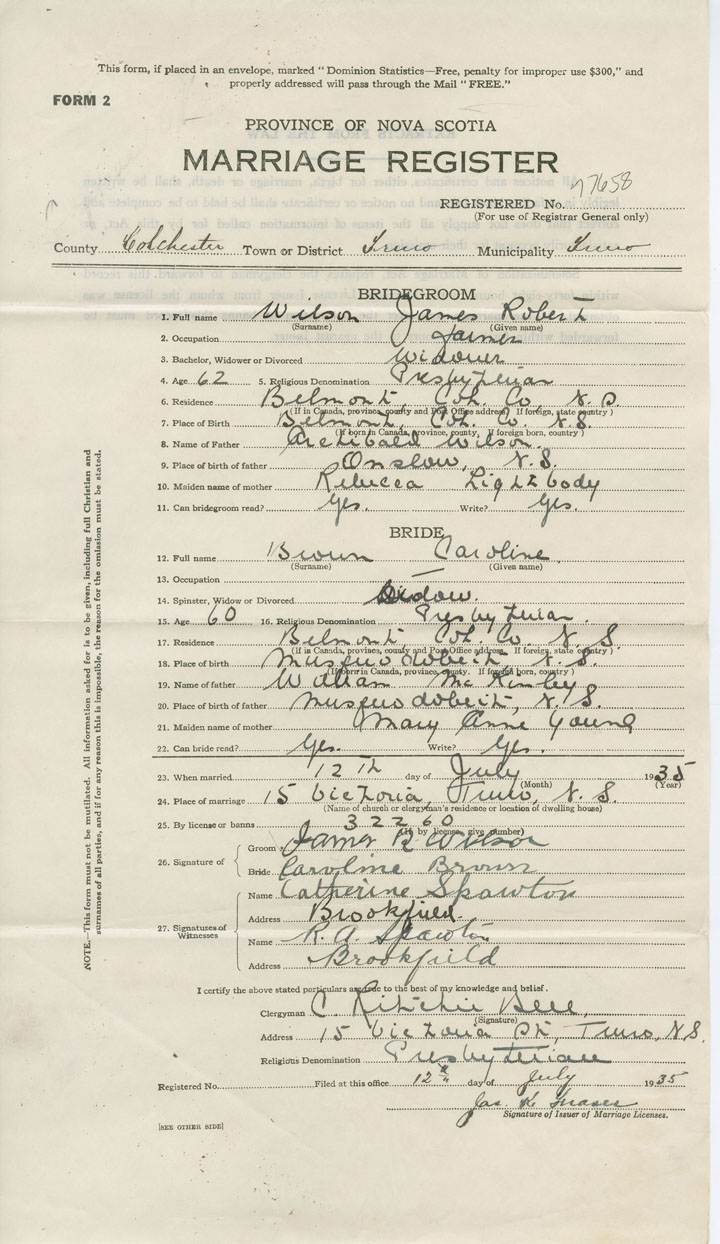 This form, if placed in an envelope, marked "Dominion Statistics—Free, penalty for improper use $300," and
properly addressed will pass through the Mail "FREE."
FORM 2
PROVINCE OF NOVA SCOTIA
MARRIAGE REGISTER
77658
REGISTERED No.
(For use of Registrar General only)
County Colchester Town or District Truro Municipality Truro
BRIDEGROOM
1. Full name Wilson James Robert
(Surname) (Given name)
2. Occupation farmer
3. Bachelor, Widower or Divorced Widower
4. Age 62 5. Religious Denomination Presbyterian
6. Residence Belmont, Col. Co, N.S.
(If in Canada, province, county and Post Office address. If foreign, state country)
7. Place of Birth Belmont, Col. Co. N.S.
(If born in Canada, province, county. If foreign born, country)
8. Name of Father Archibald Wilson
9. Place of birth of father Onslow, N.S.
10. Maiden name of mother Rebecca Lightbody
11. Can bridegroom read? Yes. Write? Yes.
BRIDE
12. Full name Brown Caroline
(Surname) (Given name)
13. Occupation —
14. Spinster, Widow or Divorced Widow.
15. Age 60 16. Religious Denomination Presbyterian.
17. Residence Belmont, Col. Co. N.S.
(If in Canada, province, county and Post Office address. If foreign, state country)
18. Place of birth Musquodobett, N.S.
(If born in Canada, province, county. If foreign born, country)
19. Name of father William McKinley
20. Place of birth of father Musquodobett, N.S.
21. Maiden name of mother Mary Anne Young
22. Can bride read? Yes. Write? Yes.
23. When married 12th day of July 1935
(Month) (Year)
24. Place of marriage 15 Victoria, Truro, N.S.
(Name of church or clergyman's residence or location of dwelling house)
25. By license or banns 32260
(If by license, give number)
26. Signature of
Groom James R Wilson
Bride Caroline Brown
27. Signatures of Witnesses
Name Catherine Spawton
Address Brookfield.
Name R. A. Spawton
Address Brookfield
I certify the above stated particulars are true to the best of my knowledge and belief.
Clergyman C. Ritchie Bell,
(Signature)
Address 15 Victoria St, Truro, N.S.
Religious Denomination Presbyterian
Registered No. Filed at this office 12th day of July 1935
Jas. K. Fraser
Signature of Issuer of Marriage Licenses.
[SEE OTHER SIDE]
NOTE.—This form must not be mutilated. All information asked for is to be given, including full Christian and
surnames of all parties, and if for any reason this is impossible, the reason for the omission must be stated.